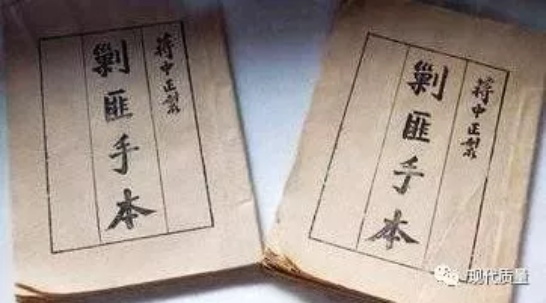 蔣中正製
剿匪手本
蔣中正製
剿匪手本
现代质量